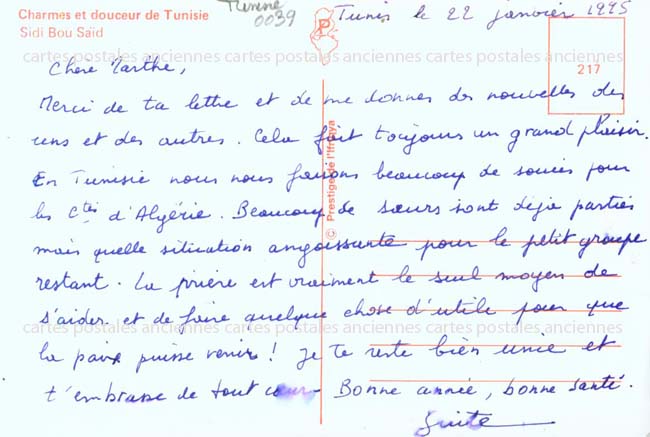 Charmes et douceur de Tunisie
Sidi Bou Saïd
Tunisie
0039
Tunis le 22 janvier 1995
217
© Prestige de l'Ifrikya
cartes postales anciennes cartes postales anciennes cartes postales anciennes
Chère Marthe,
Merci de ta lettre et de me donner des nouvelles des
uns et des autres. Cela fait toujours un grand plaisir.
En Tunisie nous nous faisons beaucoup de soucis pour
les Ctés d'Algérie. Beaucoup de sœurs sont déjà parties
mais quelle situation angoissante pour le petit groupe
restant. La prière est vraiment le seul moyen de
s'aider et de faire quelque chose d'utile pour que
cartes postales anciennes cartes postales anciennes cartes postales anciennes
la paix puisse venir! Je te reste bien unie et
t'embrasse de tout cœur. Bonne année, bonne santé.